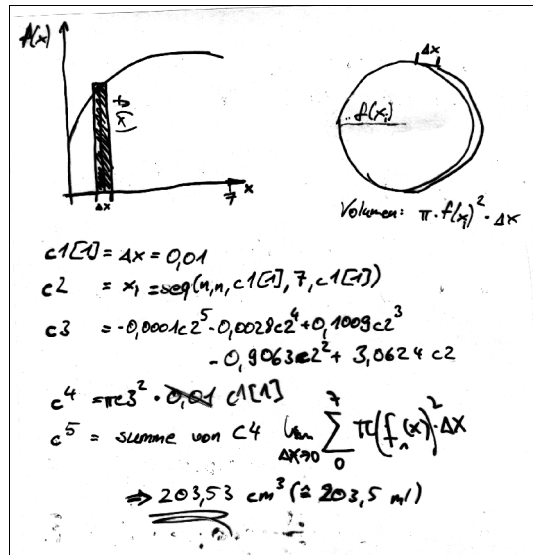 f(x)
f(x)
Δx
7 x
Δx
f(xᵢ)
Volumen: π·f(xᵢ)²·Δx
c1[1] = Δx = 0,01
c2 = xᵢ = seq(n,n,c1[1],7,c1[1])
c3 = -0,0001c2⁵-0,0028c2⁴+0,1009c2³
-0,9063c2²+ 3,0624 c2
c4 = πc3² · 0,01 c1[1]
c5 = summe von C4 lim Δx→0 ∑ 0 7 π(fₙ(x))²·Δx
⇒ 203,53 cm³ (≙ 203,5 ml)